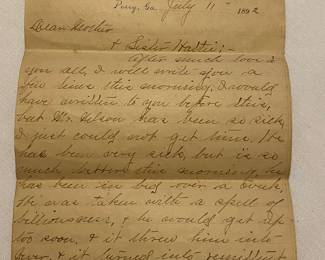 Perry, Ga. July 11 1892
Dear Mother
& Sister Hattie:-
After much love to
you all, I will write you a
few lines this morning. I would
have written to you before this,
but Mr. has been so sick
I just could not get time. He
has been very sick, but is so
much better this morning, he
has been in bed over a week.
He was taken with a spell of
billiousness, & he would get up
too soon & it threw him into
fever, & it turned into remittent